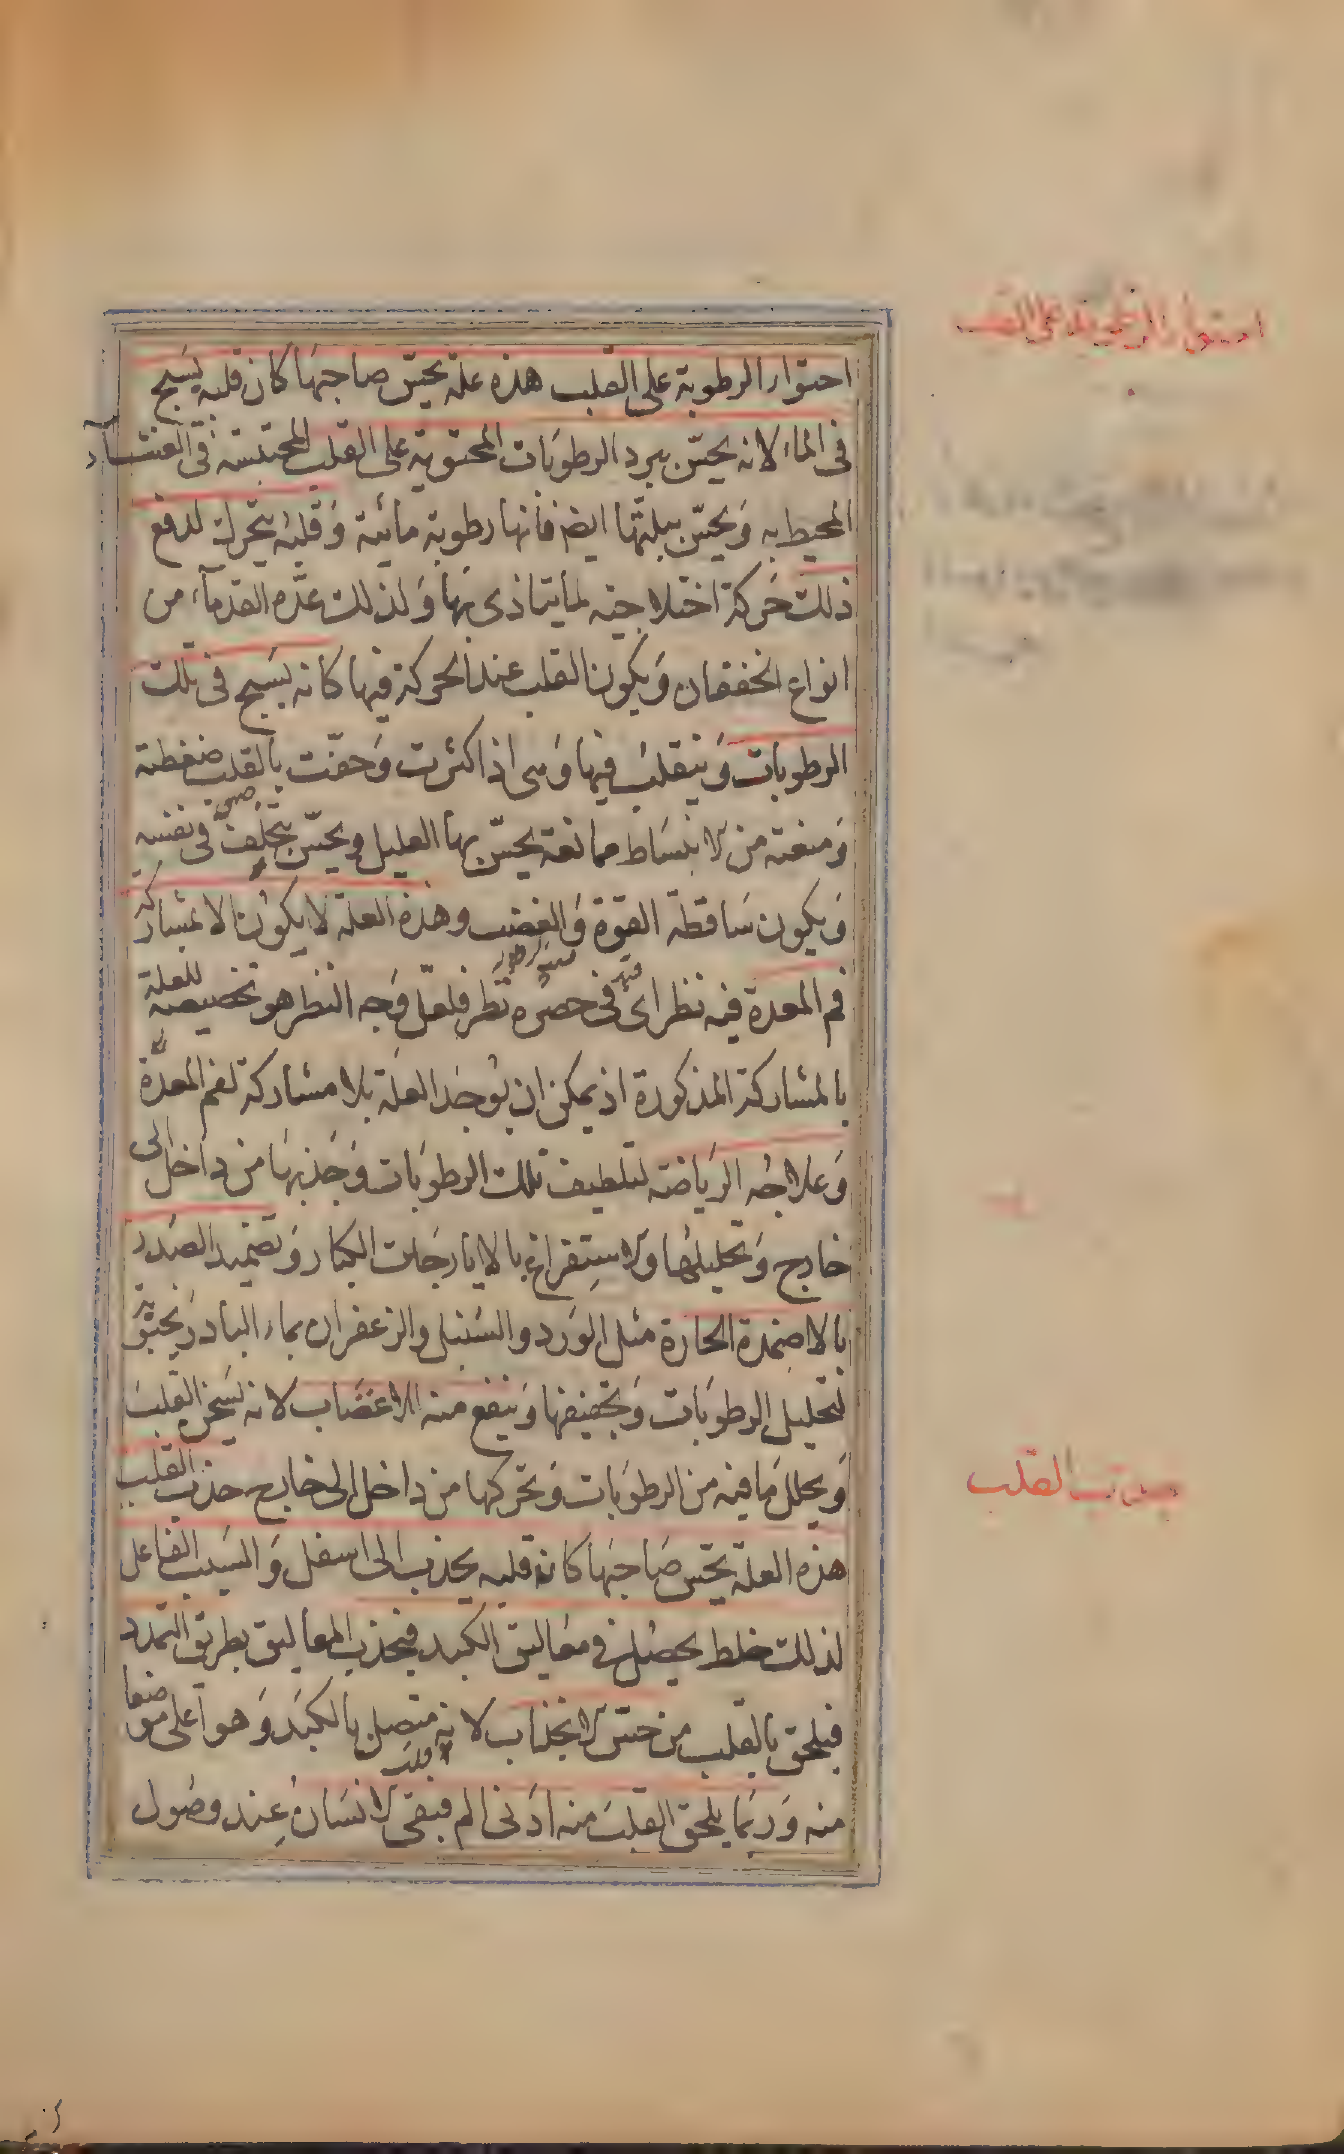 احتواء الرطوبة على القلب
احتواء الرطوبة على القلب هذه علة يحسّ صاحبها كان قلبه يسبح
فى الماء لانه يحسّ ببرد الرطوبات المحتوية على القلب المحتبسة فى الغشاء
المحيط به وَيحسّ ببلتها ايضا فانها رطوبة مائية وَقلبه يتحرك لدفع
ذلك حَركة اختلاجية لما يتاذى بها وَلذلك عدّه القدمآء من
انواع الخفقان وَيكون القلب عند الحركة فيها كانه يسبح فى تلك
الرطوبات وَينقلب فيها وَهى اذا كثرت وَحفّت بالقلب ضغطته
وَمنعته من الانبساط ممانعة يحسّ بها العليل ويحسّ بتخلف فى نفسه
وَيكون ساقطة القوة وَالغضب وهذه العلة لا يكون الا بمشاركة
فم المعدة فيه نظر اى فى حصره نظر فلعلّ وَجه النظر هو تخصيصه للعلة
بالمشاركة المذكورة اذ يمكن ان توجد العلة بلا مشاركة لفم المعدة
وَعلاجه الرياضة لتلطيف تلك الرطوبات وَجذبها من داخل الى
خارج وَتحليلها والاستفراغ بالايارجات الكبار وَتضميد الصدر
بالاضمدة الحارة مثل الورد والسنبل والزعفران بماء البادرنجبوية
لتحليل الرطوبات وَتجفيفها وَينفع منه الاغضاب لانه يسخن القلب
وَيحلل ما فيه من الرطوبات وَتحركها من داخل الى خارج جذب القلب
جذب القلب
هذه العلة يحس صاحبها كان قلبه يجذب الى اسفل وَالسبب الفاعل
لذلك خلط يحصل فى معاليق الكبد فيجذب المعاليق بطريق التمدد
فيلحق بالقلب من حسّ الانجذاب لانه متصل بالكبد وَهو اعلى موضعا
منه وَربما يلحق القلب منه ادنى الم فيبقى الانسان عند وصول